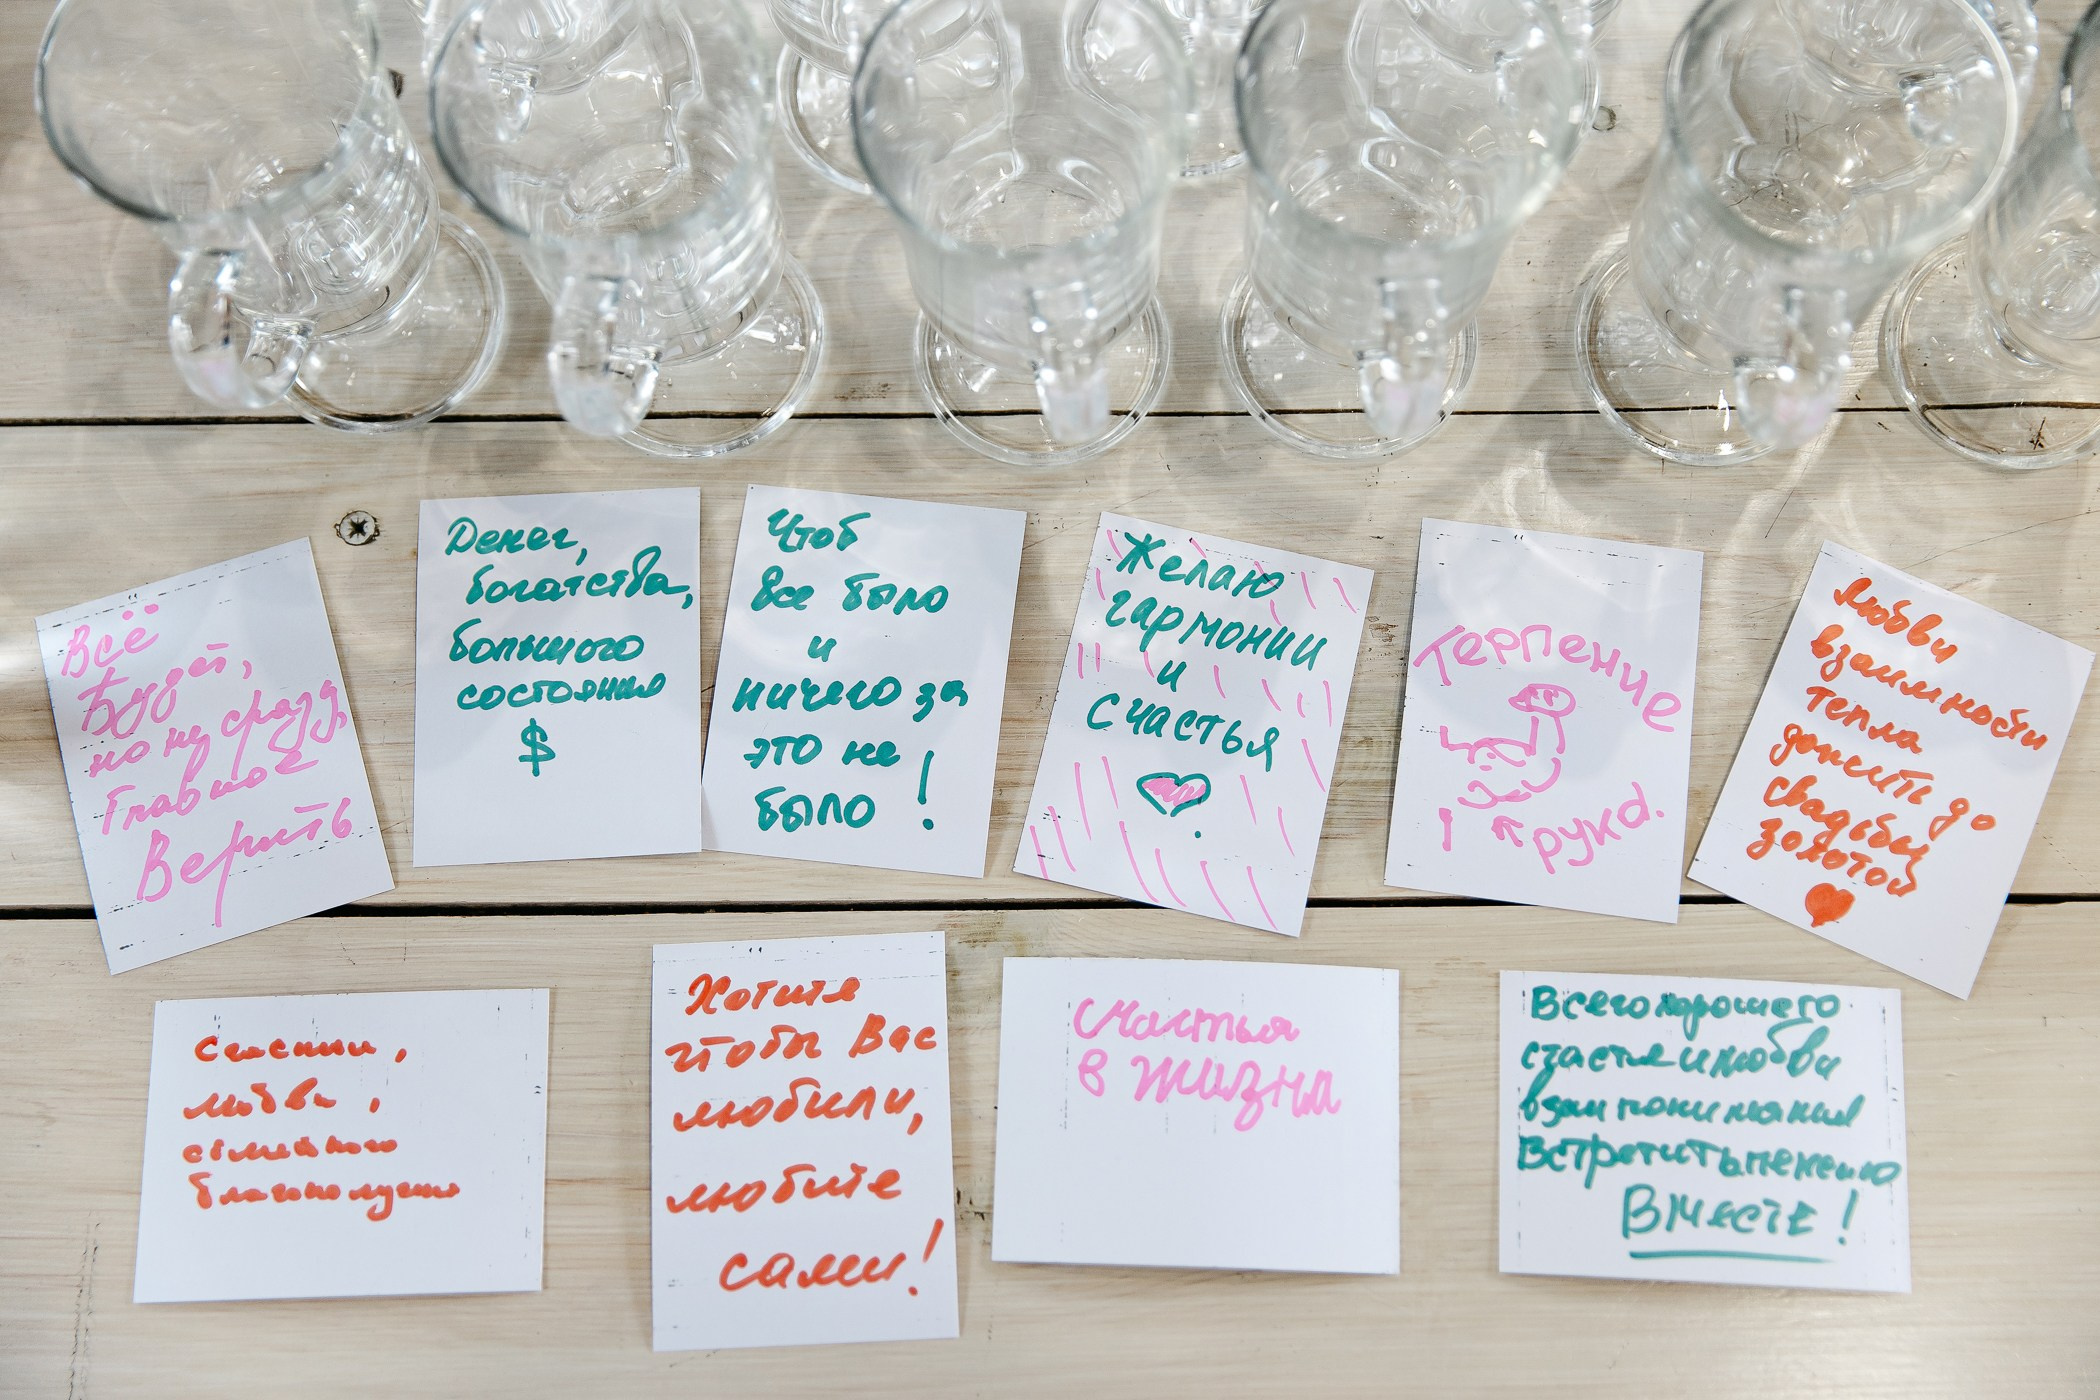 Всё
Будет,
но не сразу,
Главное
Верить
Денег,
богатства,
большого
состояния
$
Чтоб
все было
и
ничего за
это не
было!
Желаю
гармонии
и
счастья
Терпение
рука.
Любви
взаимности
тепла
дожить до
свадьбы
золотой
любви,
семейного
благополучия
Хотите
чтобы Вас
любили,
любите
сами!
Счастья
в жизни
Всего хорошего
счастья и любви
взаимопонимания
встретить пенсию
Вместе!